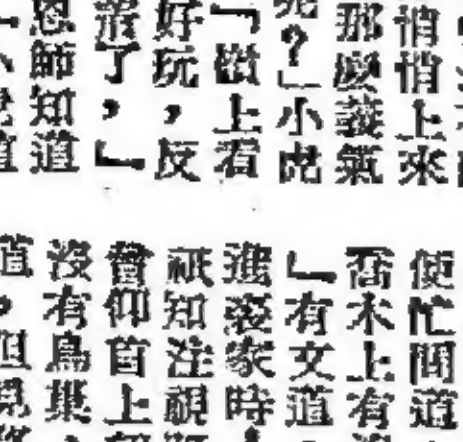 悄悄上來
那麼義氣
?」小虎
「樹上看
好玩,反
了,」
恩師知道
便忙問道
喬木上有
」有文道
進家時
祇知注視
曾仰首上
沒有鳥巢
道,但見